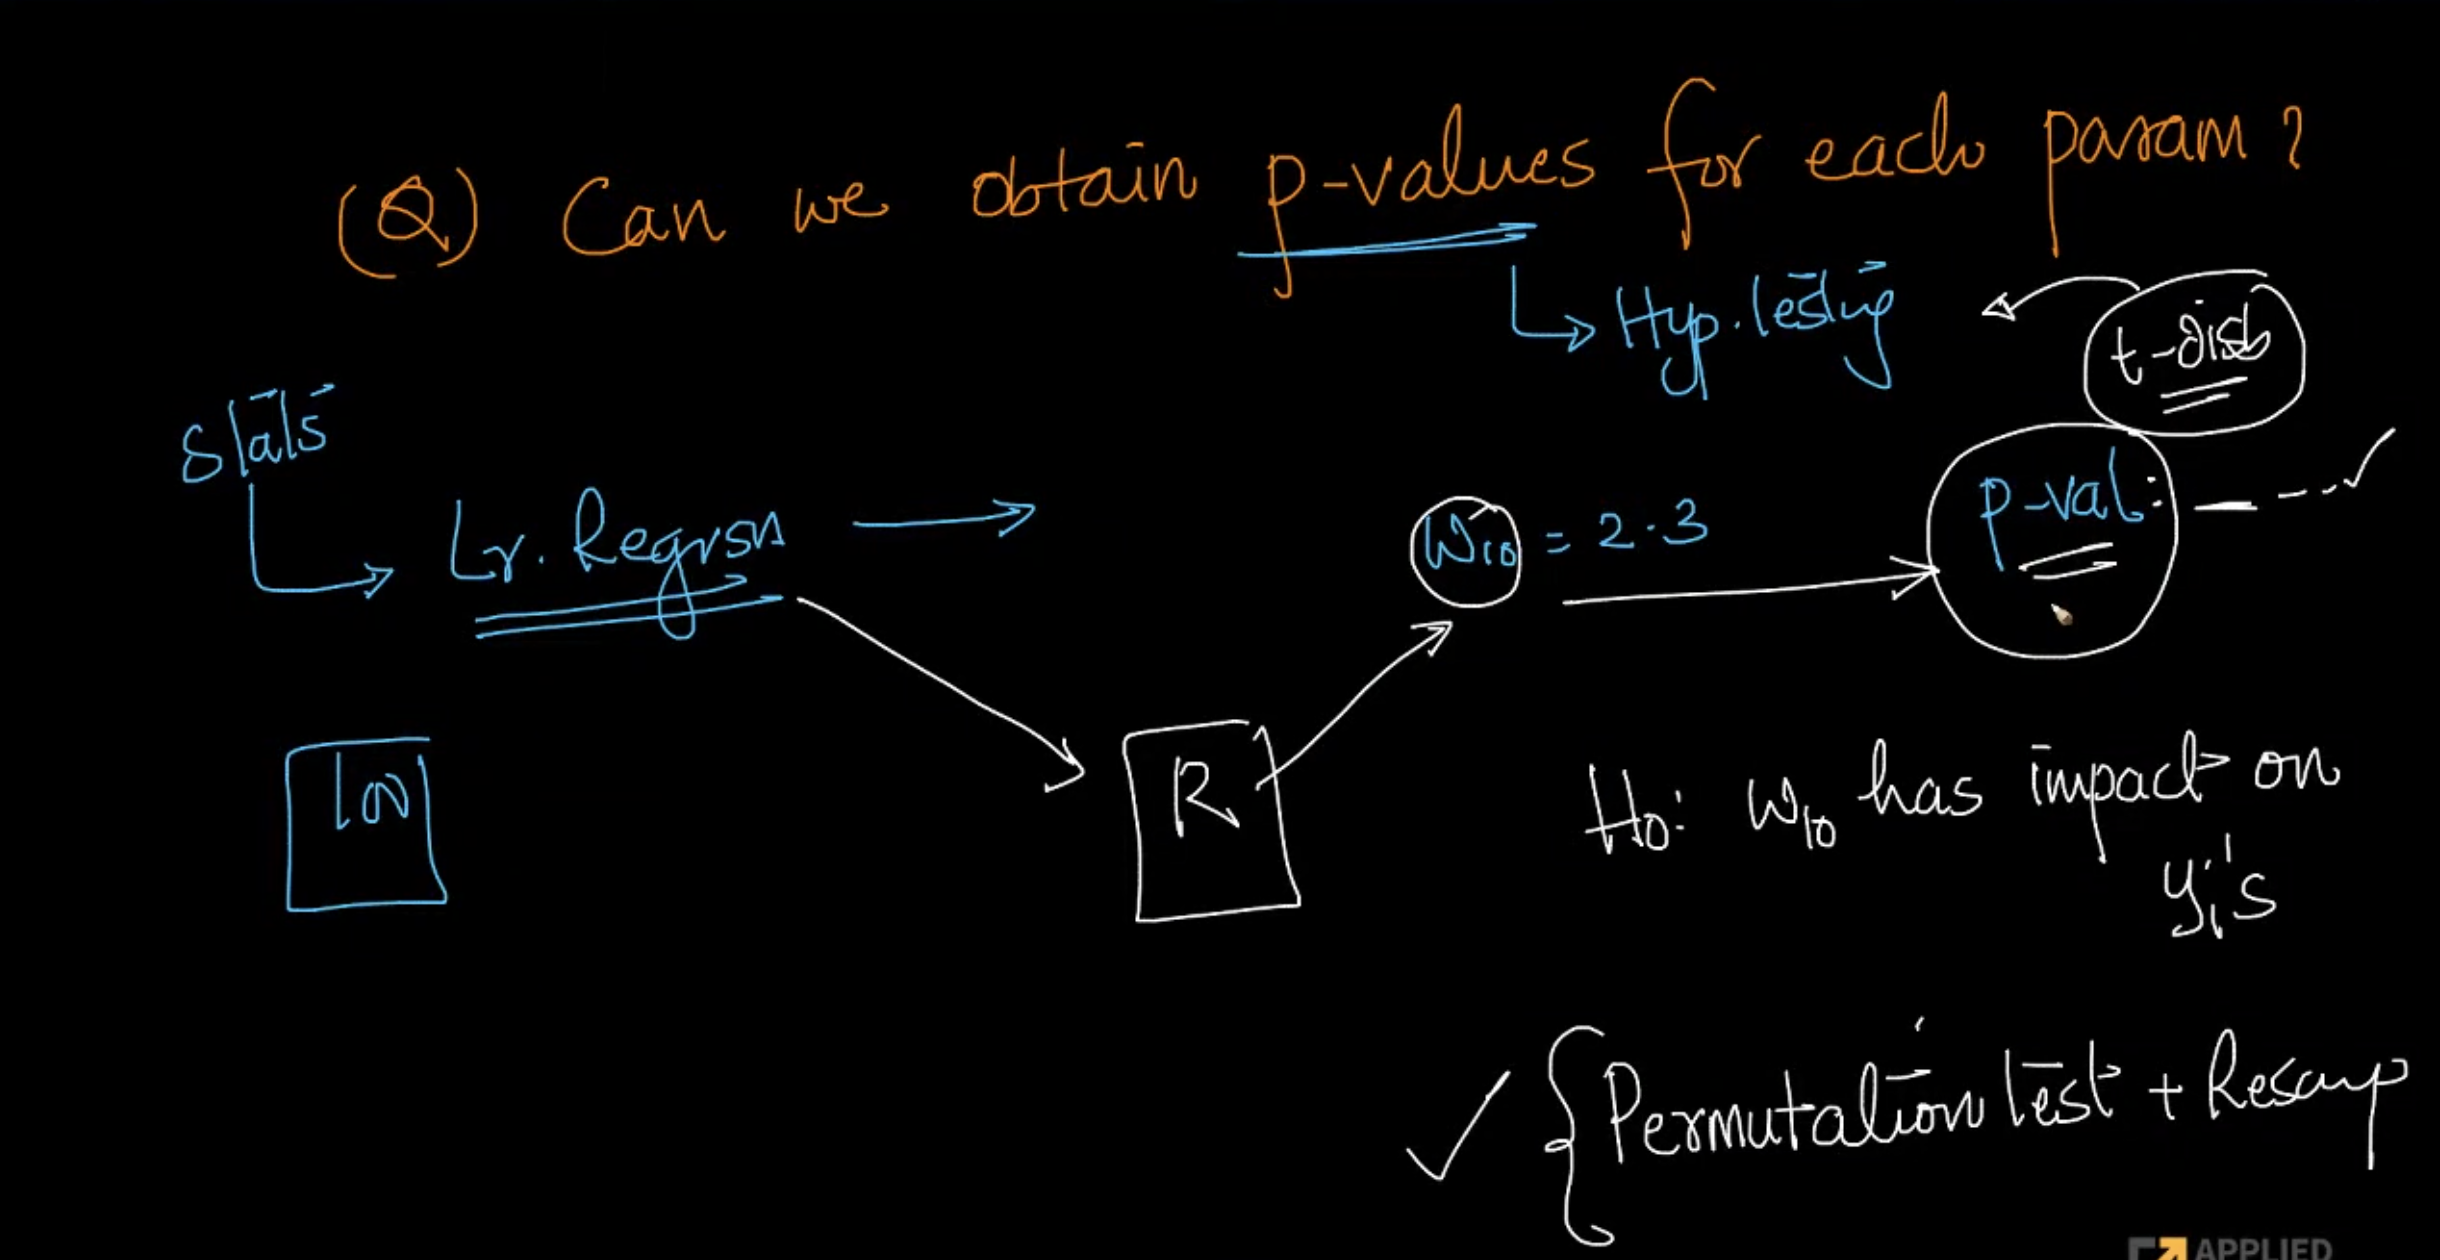 (Q) Can we obtain p-values for each param?
Hyp. testing
t-dist
Stats
Lr. Regrsn
w10 = 2.3
p-val:
R
H0: w10 has impact on
yi's
{Permutation test + Resamp
APPLIED